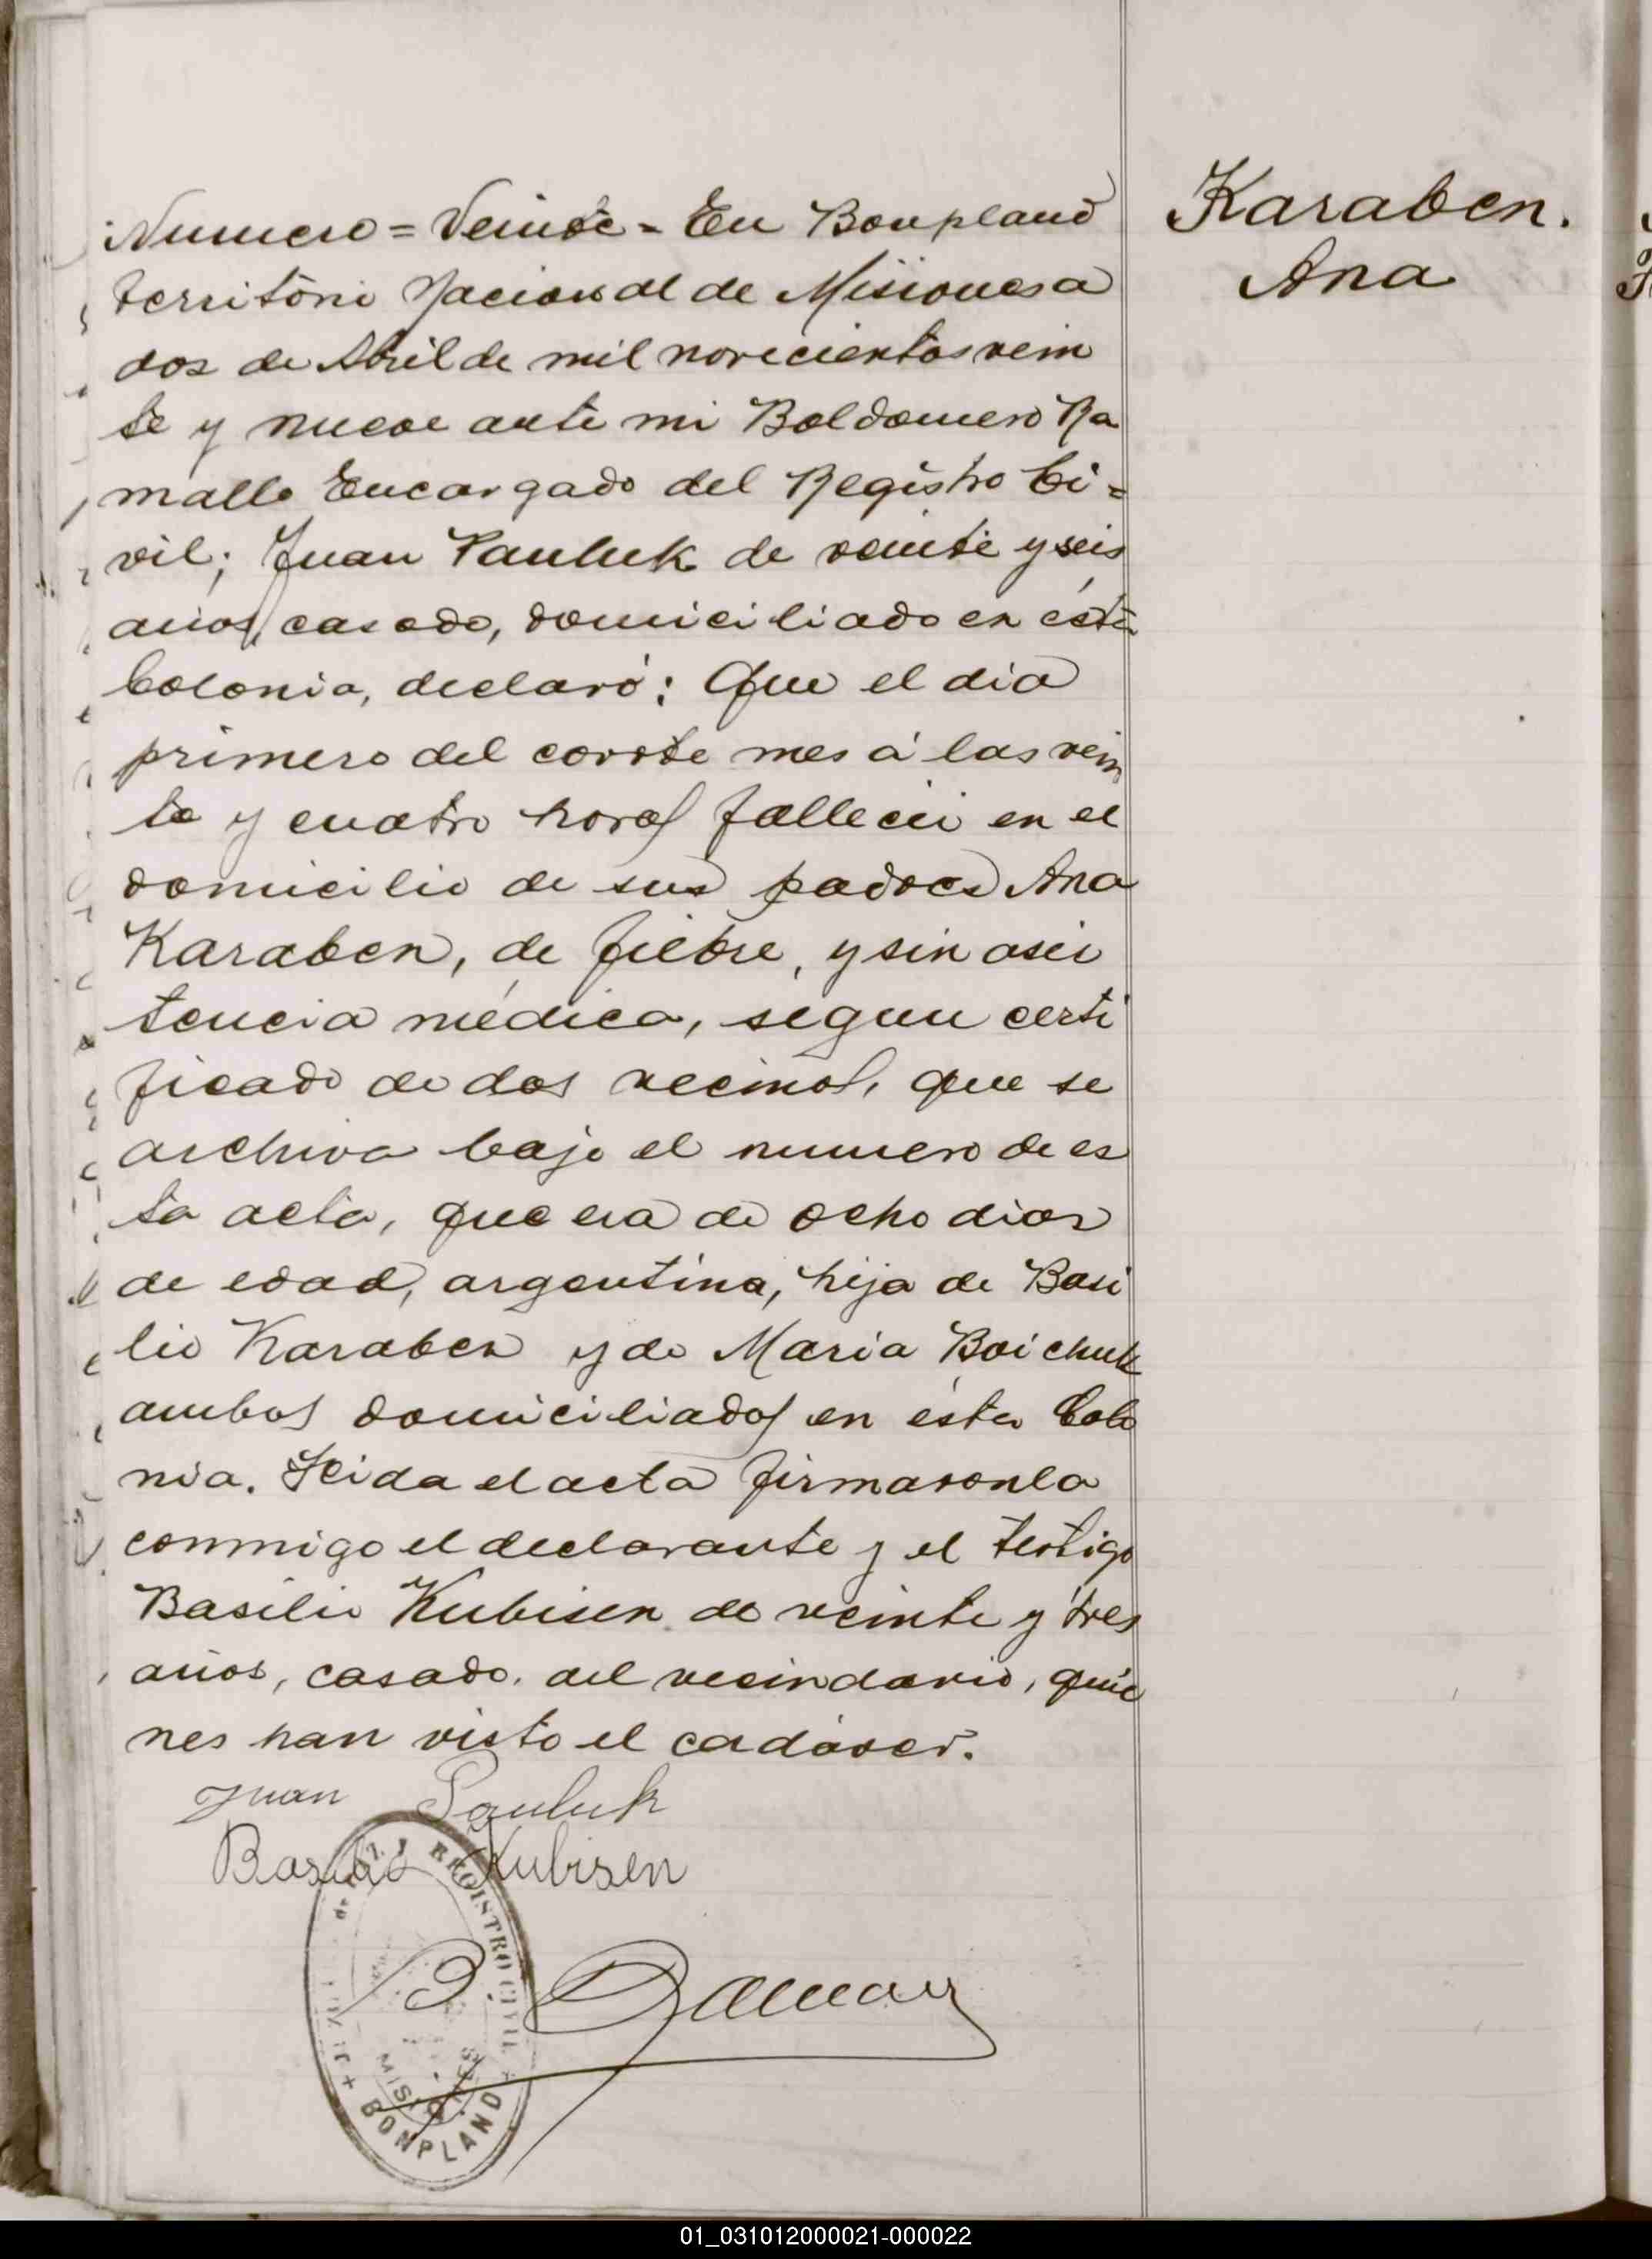 Karaben.
Ana
Numero = Veinte = En Bonpland
territorio Nacional de Misiones a
dos de Abril de mil novecientos vein
te y nueve ante mi Baldomero Ra
mallo Encargado del Registro Ci=
vil; Juan Pauluk de veinte y seis
años, casado, domiciliado en ésta
Colonia, declaró: Que el dia
primero del corrte mes á las vein
te y cuatro horas falleció en el
domicilio de sus padres Ana
Karaben, de fiebre, y sin asis
tencia médica, segun certi
ficado de dos vecinos, que se
archiva bajo el numero de es
ta acta, que era de ocho dias
de edad, argentina, hija de Basi
lio Karaben y de Maria Boichuk
ambos domiciliados en ésta Colo
nia. Leida el acta firmaronla
conmigo el declarante y el testigo
Basilio Kubisen de veinte y tres
años, casado, del vecindario, quie
nes han visto el cadáver.
Juan Pauluk
Basilio Kubisen
B. Ramallo
REGISTRO CIVIL
MISIONES
BONPLAND
01_031012000021-000022